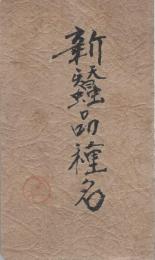 新蠶品種名